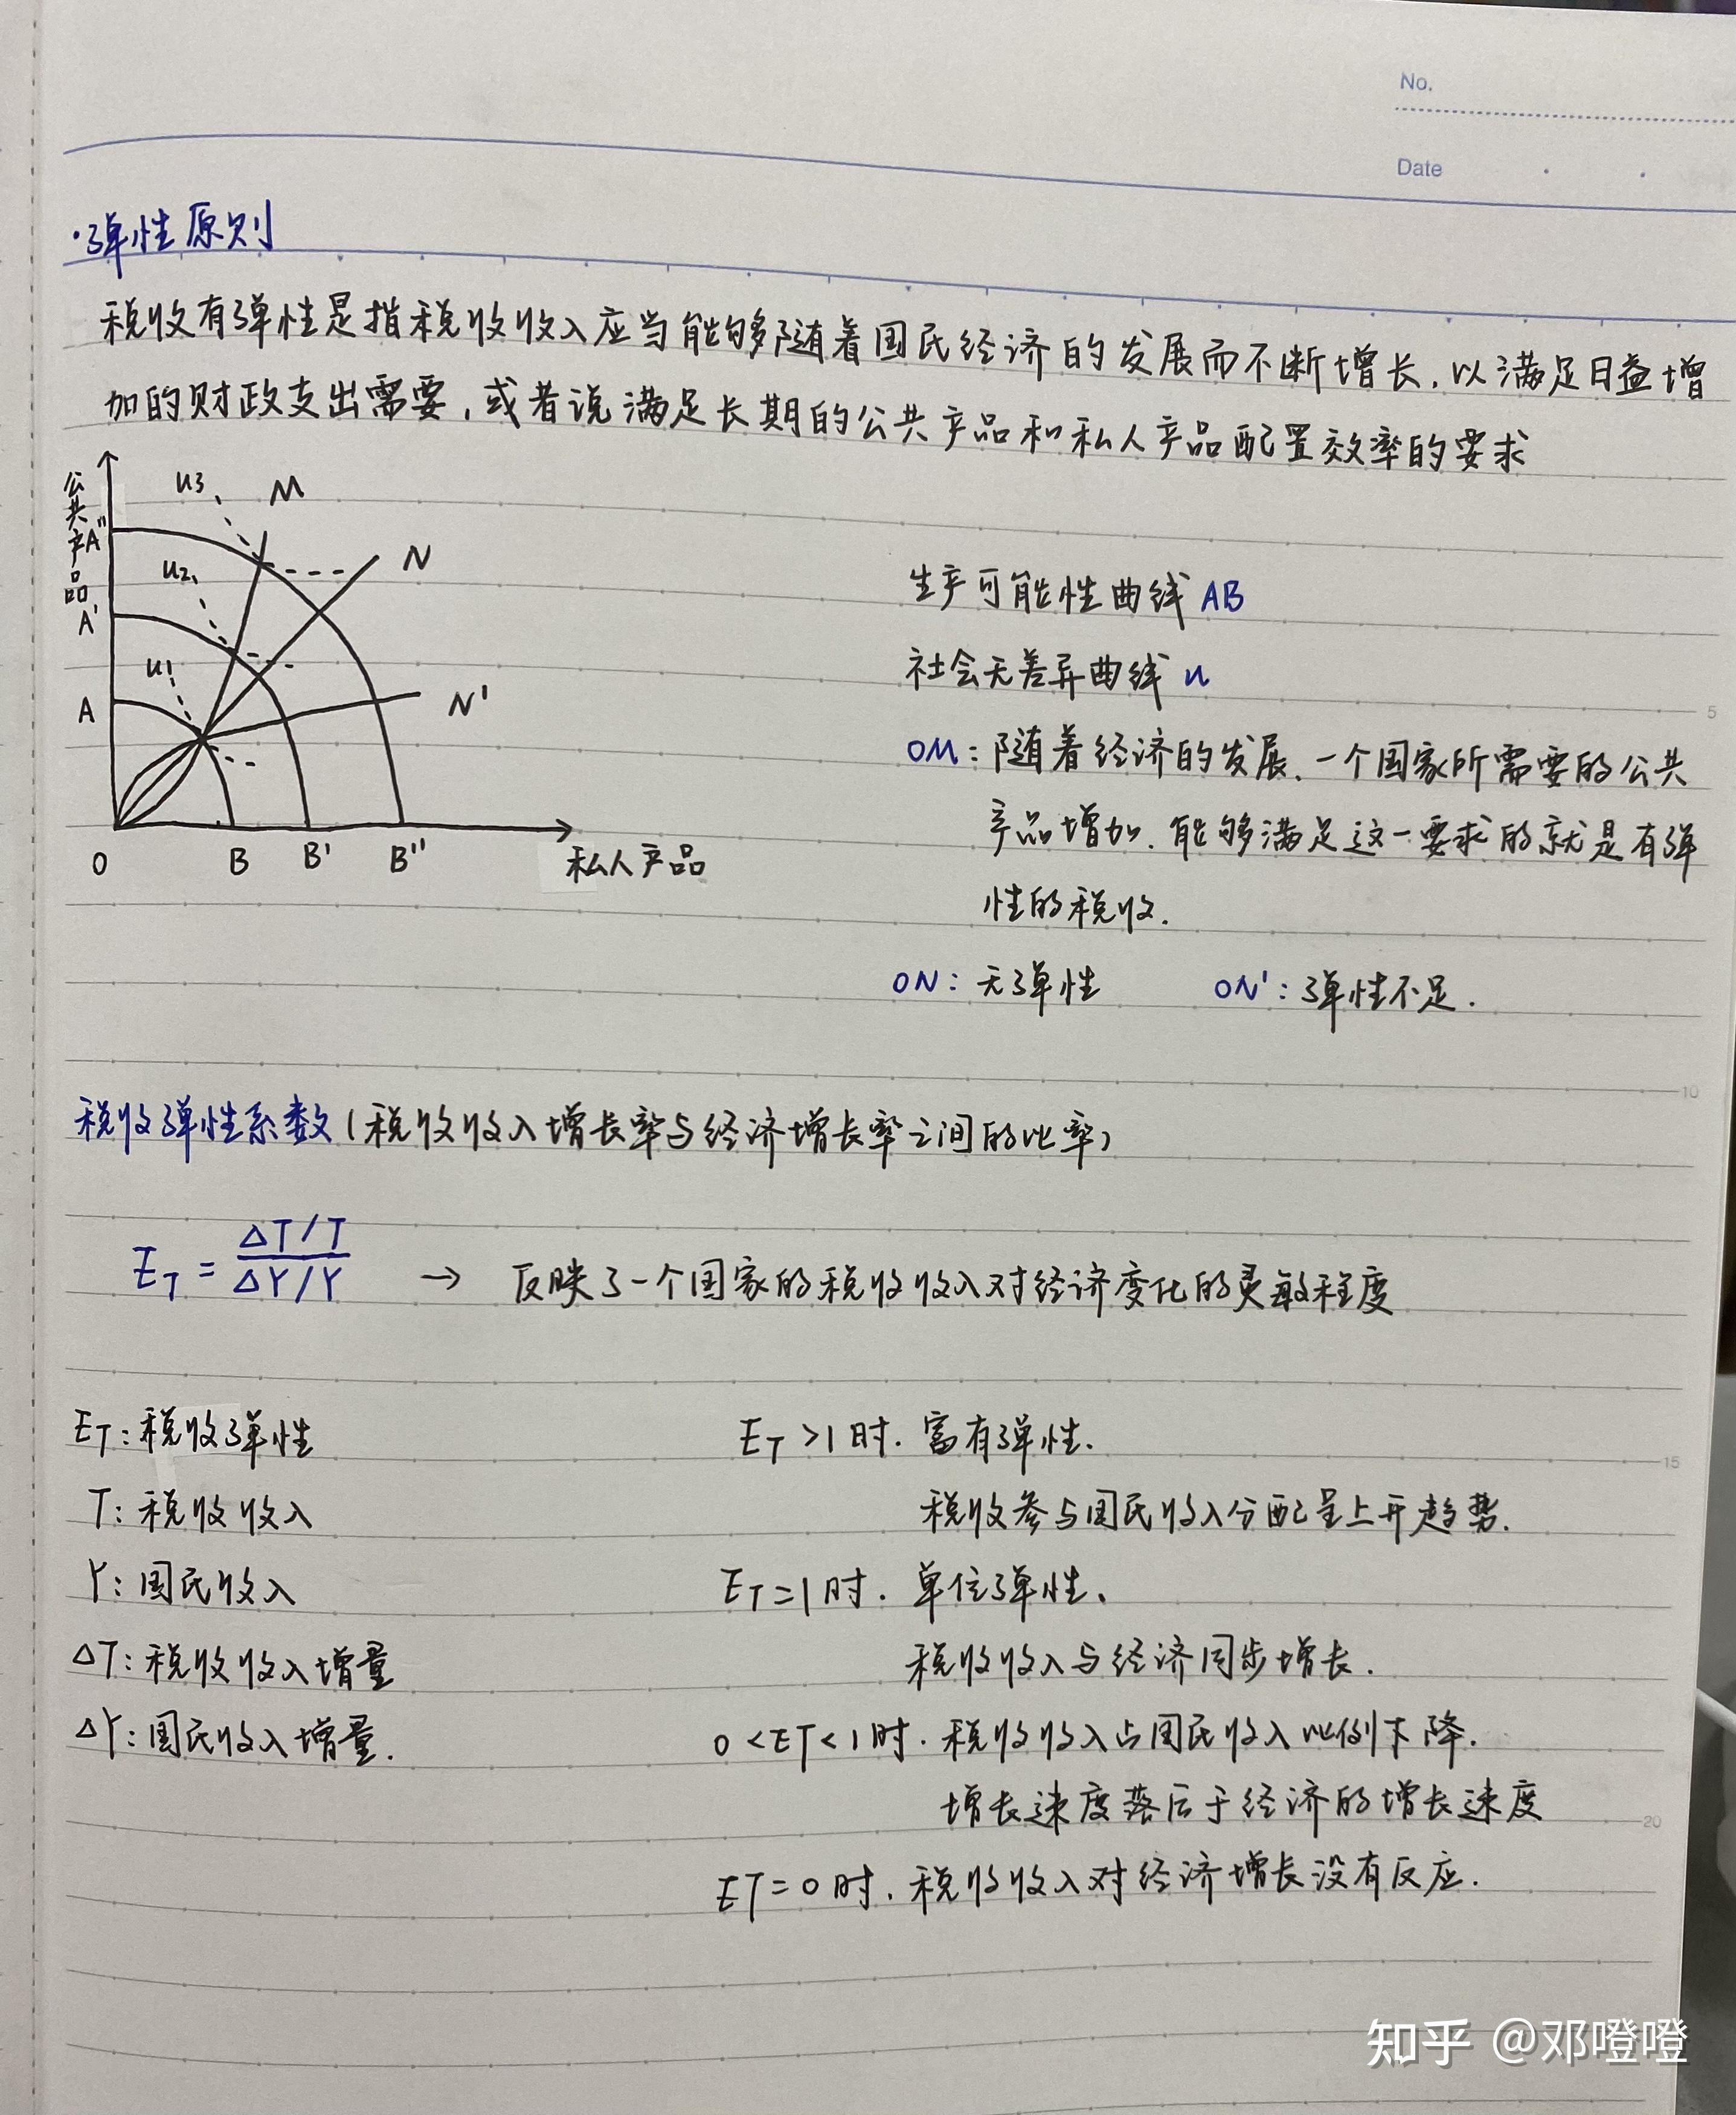 No.
Date
·弹性原则
税收有弹性是指税收收入应当能够随着国民经济的发展而不断增长,以满足日益增
加的财政支出需要,或者说满足长期的公共产品和私人产品配置效率的要求
公共产品
u3
M
A''
N
u2
A'
u1
N'
A
O
B
B'
B''
私人产品
生产可能性曲线 AB
社会无差异曲线 u
OM:随着经济的发展、一个国家所需要的公共
产品增加.能够满足这一要求的就是有弹
性的税收.
ON:无弹性 ON':弹性不足.
5
10
税收弹性系数(税收收入增长率与经济增长率之间的比率)
E_T = (ΔT/T)/(ΔY/Y) → 反映了一个国家的税收收入对经济变化的灵敏程度
E_T:税收弹性
T:税收收入
Y:国民收入
ΔT:税收收入增量
ΔY:国民收入增量.
E_T >1时.富有弹性.
15
税收参与国民收入分配呈上升趋势.
E_T=1时.单位弹性、
税收收入与经济同步增长.
0<E_T<1时.税收收入占国民收入比例下降.
增长速度落后于经济的增长速度
20
E_T=0时.税收收入对经济增长没有反应.
知乎 @邓噔噔